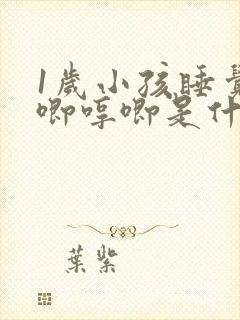 1歲小孩睡覺
唧哼唧是什
葉紫